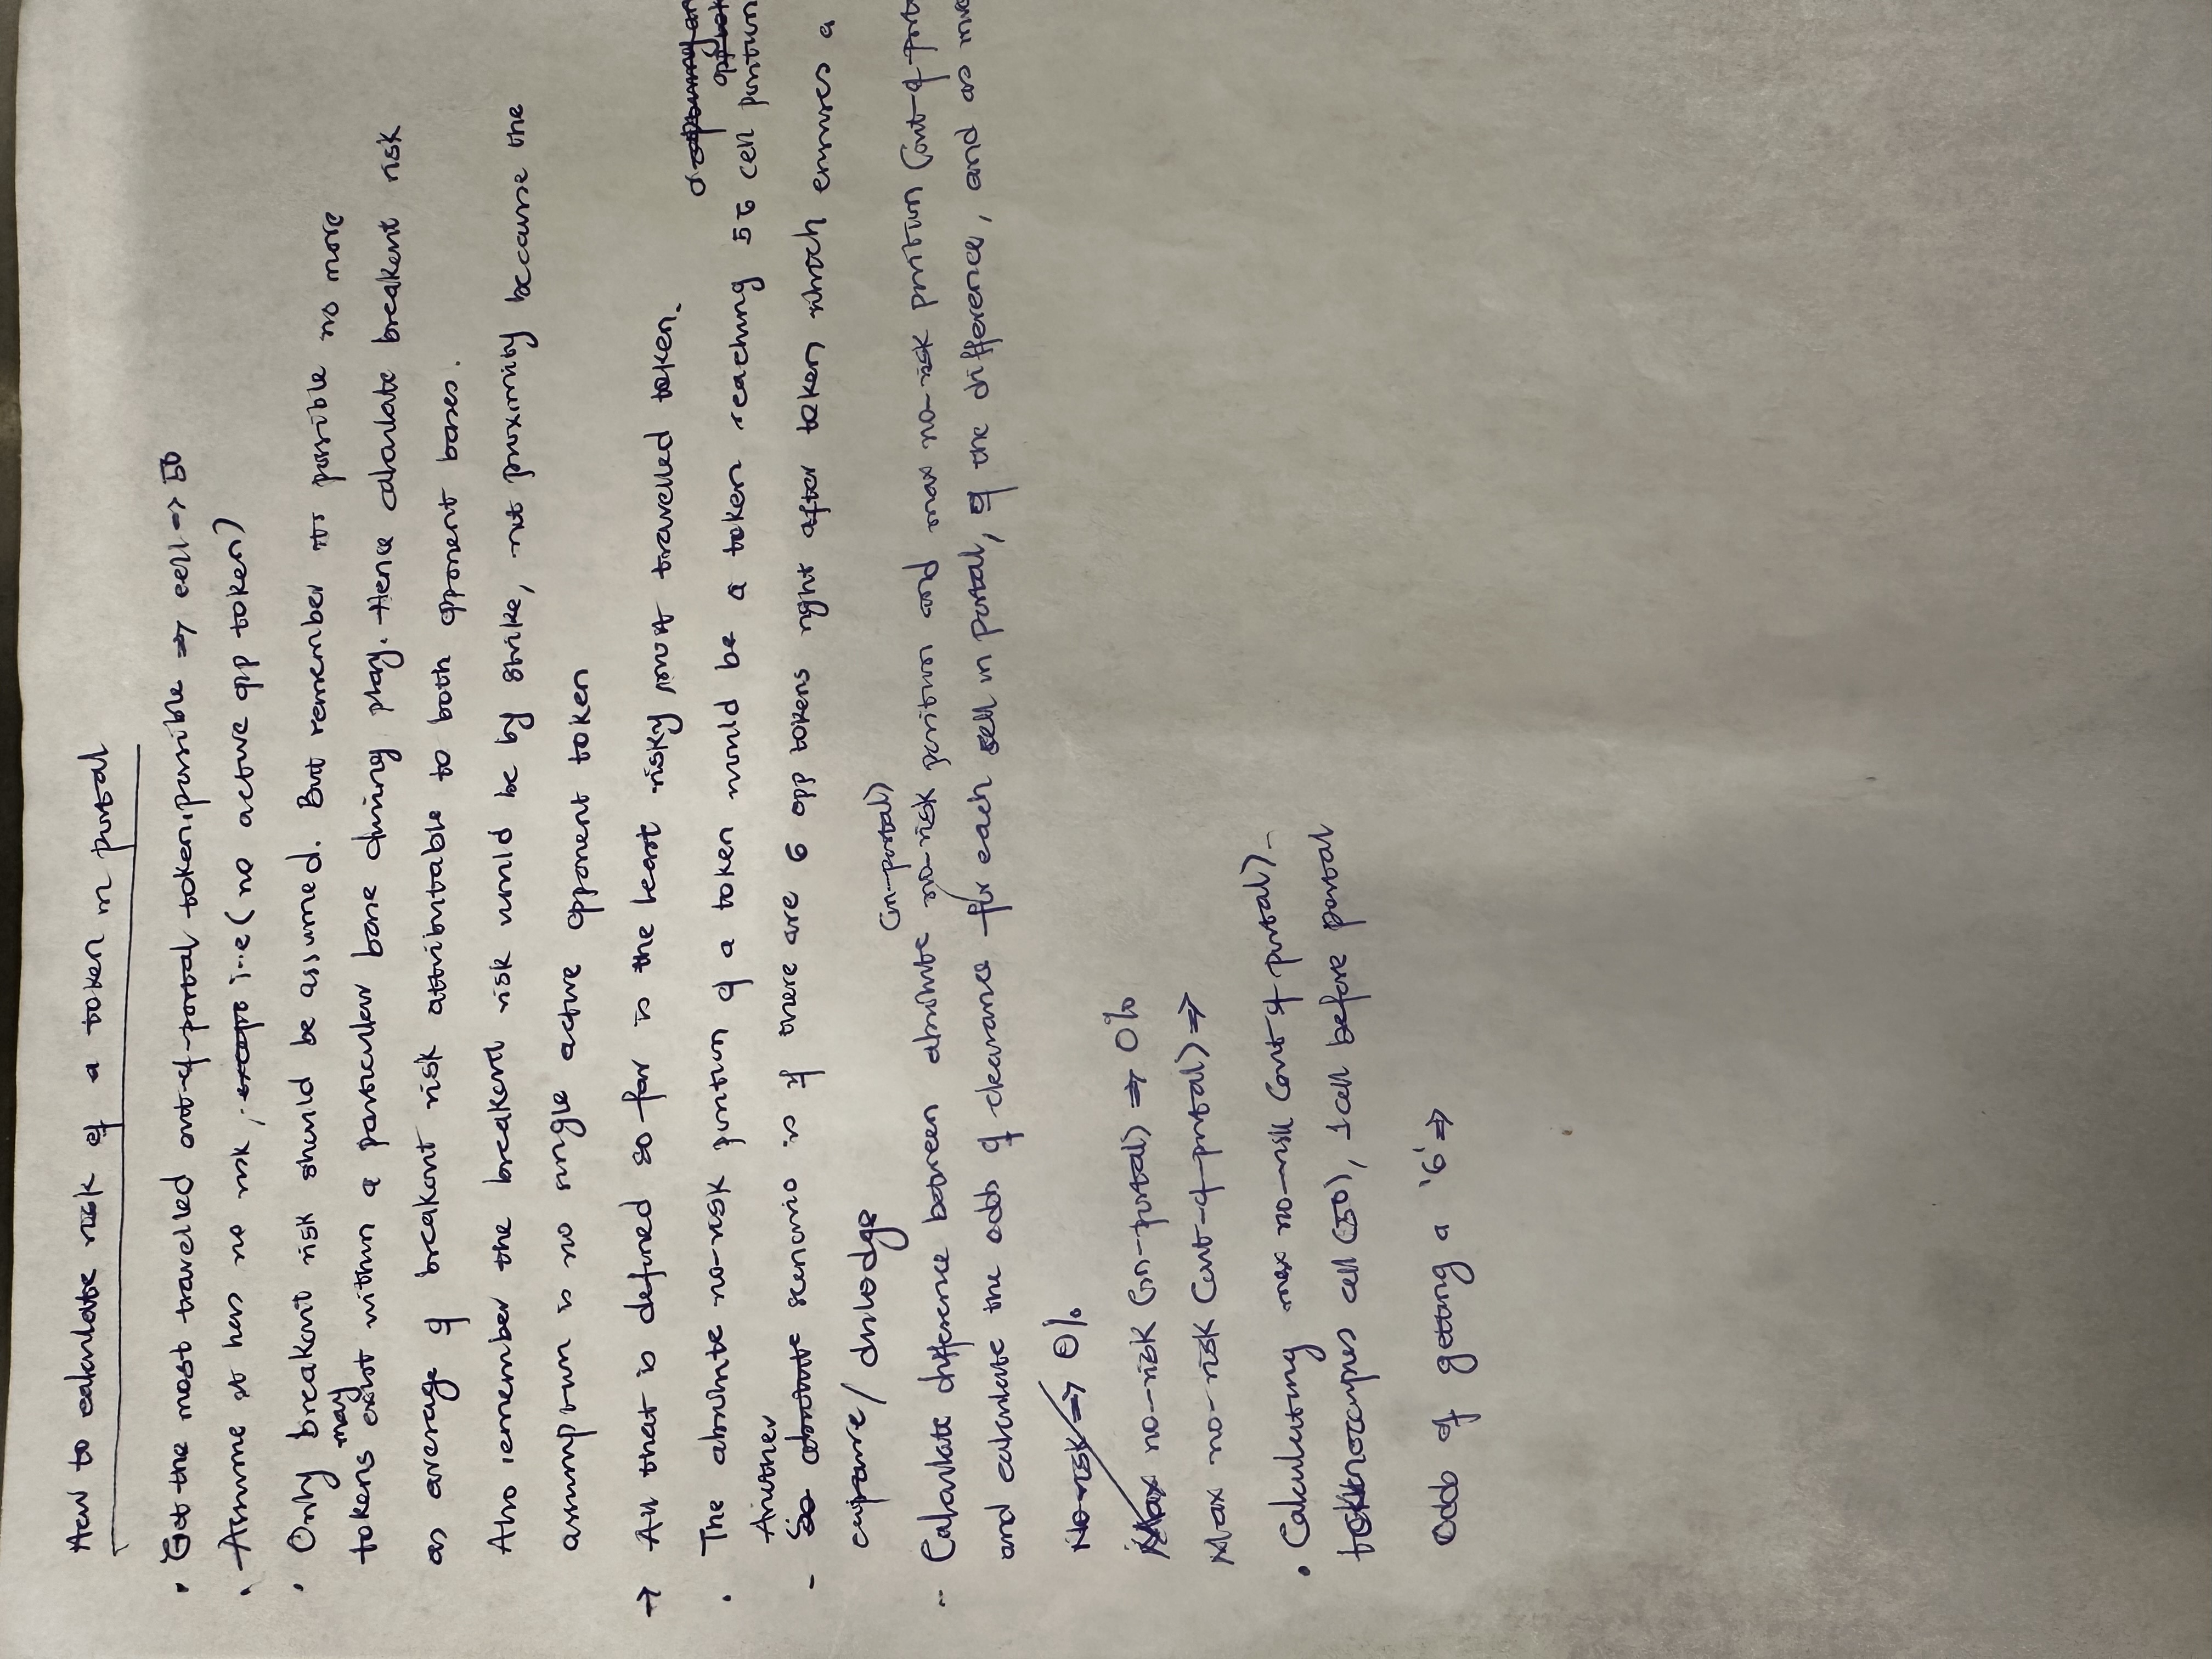 How to calculate risk of a token in portal
• Get the most travelled out-of-portal token possible => cell -> 50
• Assume it has no risk, except i.e (no active opp token)
• Only breakout risk should be assumed. But remember its possible no more
may
tokens exist within a particular base during play. Hence calculate breakout risk
as average of breakout risk attributable to both opponent bases.
Also remember the breakout risk would be by strike, not proximity because the
assumption is no single active opponent token
→ All that is defined so far is the least risky most travelled token.
• The absolute no-risk position of a token would be a token reaching 56 cell position
Another
- So absolute scenario is if there are 6 opp tokens right after token which ensures a
capture/ dislodge
(in-portal)
- Calculate difference between absolute no-risk position and max no-risk position (out-of-port
and calculate the odds of clearance for each cell in portal, of the difference, and as
No-risk => 0%
Max no-risk (in-portal) => 0%
Max no-risk (out-of-portal) =>
• Calculating max no-risk (out of portal)-
token occupies cell (50), 1 cell before portal
Odds of getting a '6' =>